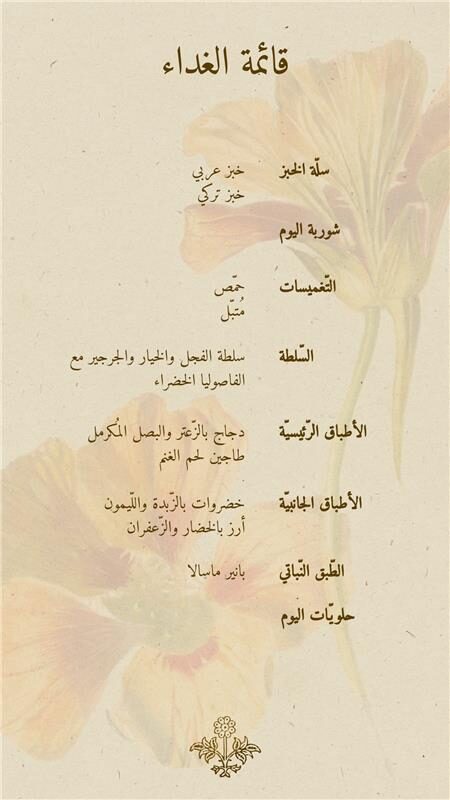 قائمة الغداء
سلّة الخبز
خبز عربي
خبز تركي
شوربة اليوم
التّغميسات
حمّص
مُتبّل
السّلطة
سلطة الفجل والخيار والجرجير مع
الفاصوليا الخضراء
الأطباق الرّئيسيّة
دجاج بالزّعتر والبصل المُكرمل
طاجين لحم الغنم
الأطباق الجانبيّة
خضروات بالزّبدة واللّيمون
أرز بالخضار والزّعفران
الطّبق النّباتي
بانير ماسالا
حلويّات اليوم